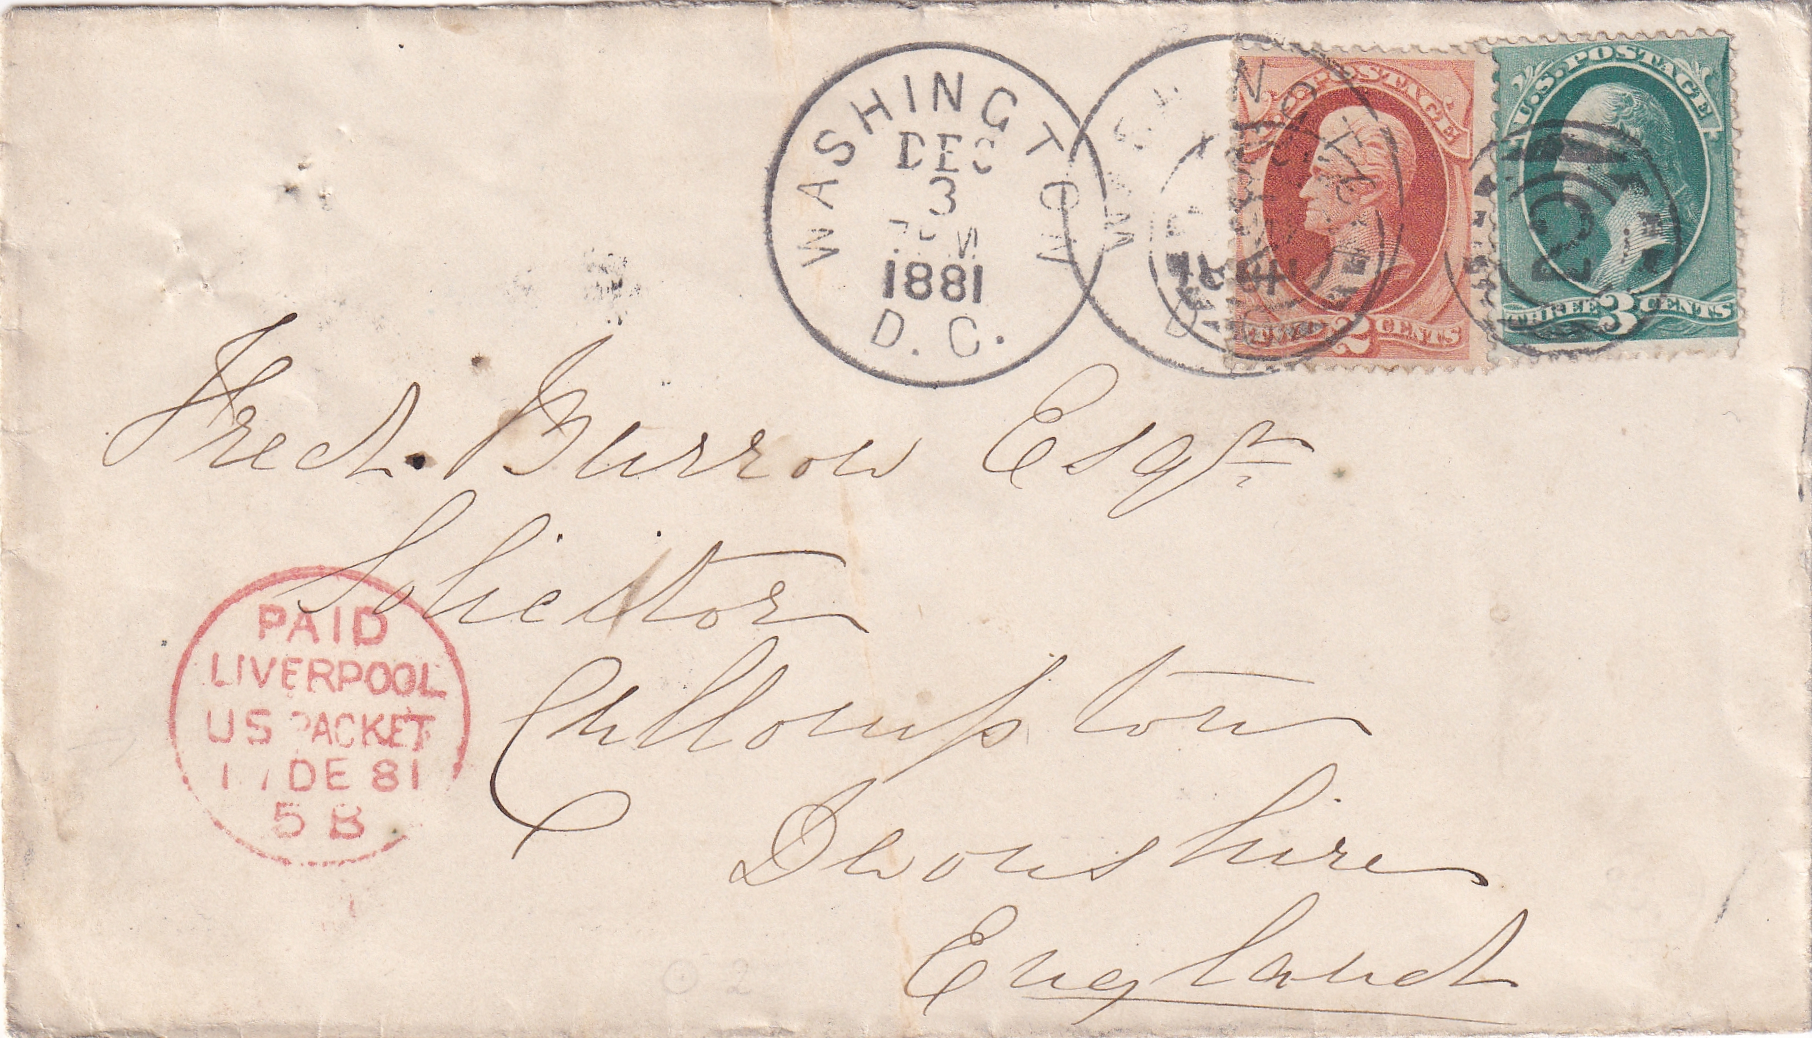 WASHINGTON
DEC
3
1881
D.C.
1881
U.S. POSTAGE
2 CENTS
U.S. POSTAGE
THREE 3 CENTS
Fred. Burrow Esqr.
Solicitor
Cullompton
Devonshire
England
PAID
LIVERPOOL
US PACKET
DE 81
5 B
2